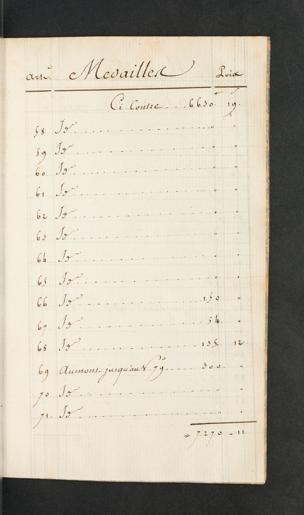 art. Medailles Prix
Ci Contre . . . 6650 " 19 "
58 Id . . . " "
59 Id . . . " "
60 Id . . . " "
61 Id . . . " "
62 Id . . . " "
63 Id . . . " "
64 Id . . . " "
65 Id . . . " "
66 Id . . . 130 "
67 Id . . . 54 "
68 Id . . . 135 12
69 . . . 300 "
70 Id . . . " "
71 Id . . . " "
7270 " 11